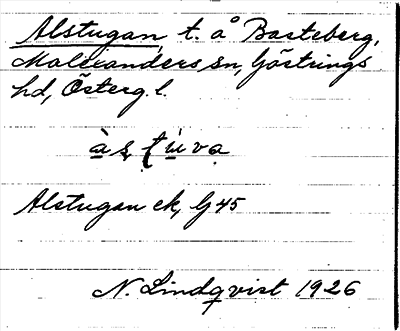 Alstugan, t. å Basteberg,
Malexanders sn, Göstrings
hd, Österg. l.
à s, t ù v a
Alstugan ek, G 45
N. Lindqvist 1926